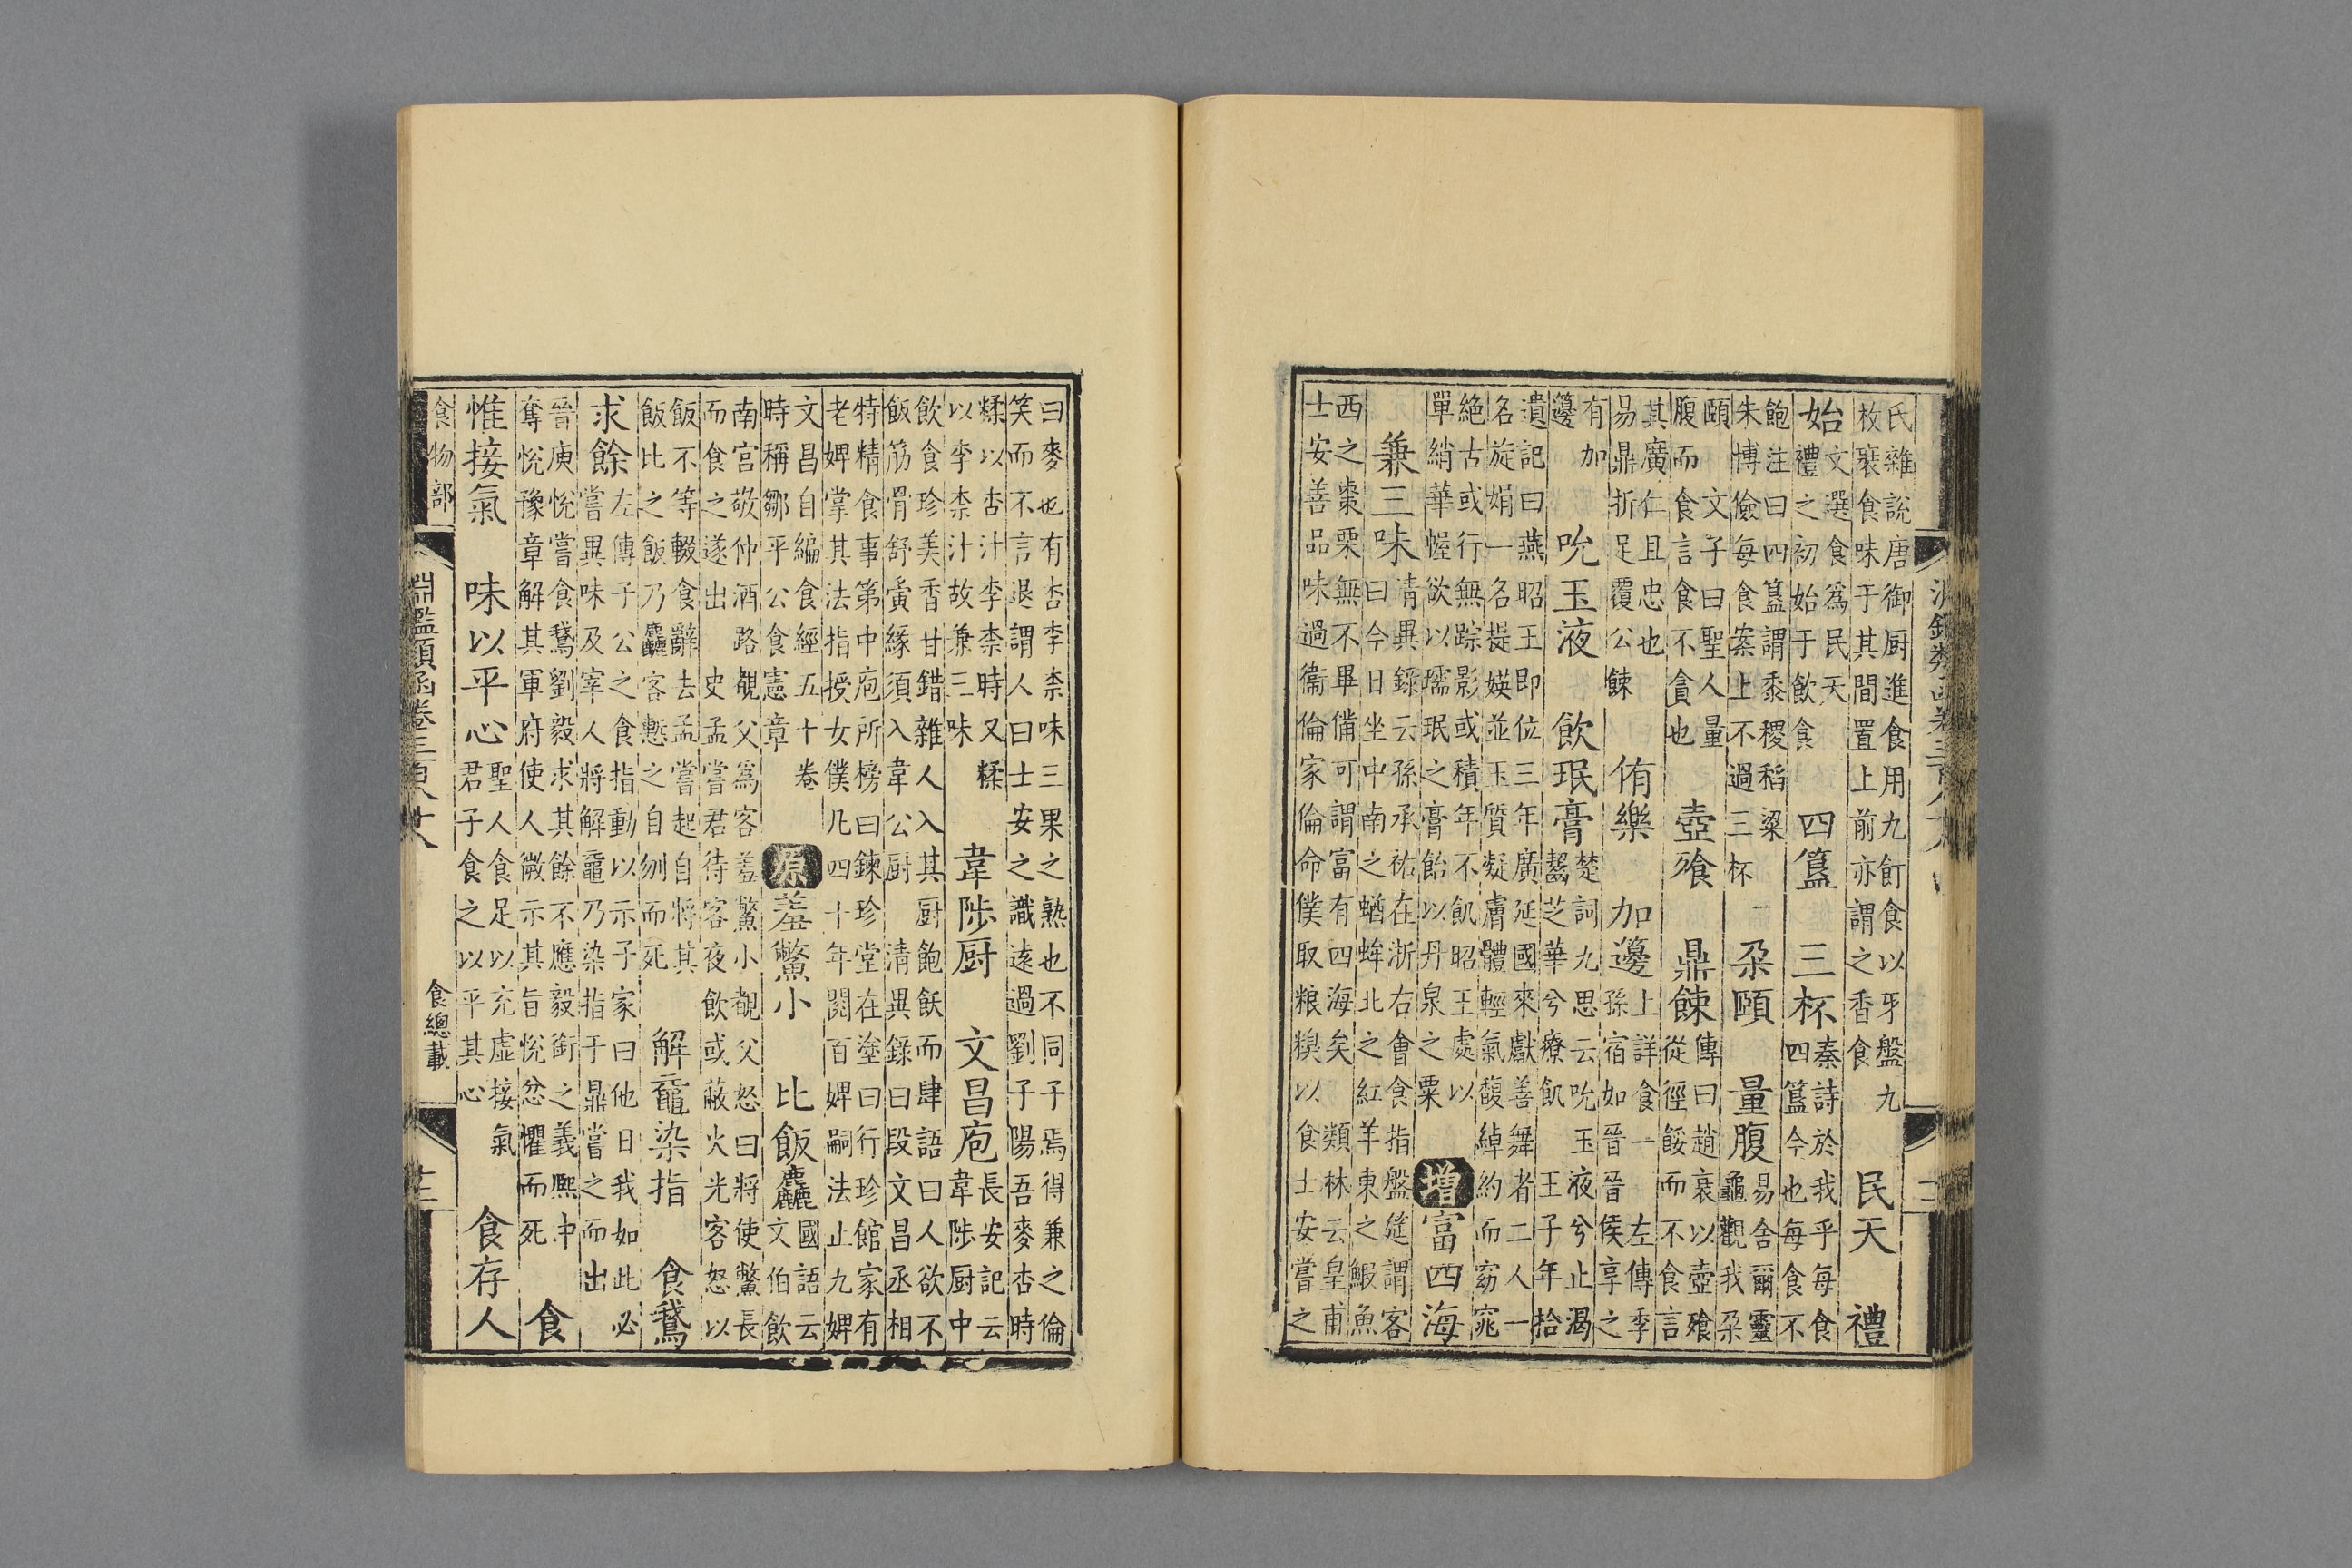 氏雜説唐御厨進食用九飣食以牙盤九枚裝食味于其間置上前亦謂之香食　民天　禮
始文選食爲民天禮之初始于飲食　四簋　三杯秦詩於我乎每食四簋今也每食不
飽注曰四簋謂黍稷稻粱朱博儉每食案上不過三杯　朶頤　量腹易舍爾靈龜觀我朶
頤　文子曰聖人量腹而食言食不貪也　壺飱　鼎餗傳曰趙衰以壺飱從徑餒而不食言
其廣仁且忠也易鼎折足覆公餗　侑樂　加籩上詳食一　左傳季孫宿如晉晉侯享之
有加籩　吮玉液　飲珉膏楚詞九思云吮玉液兮止渴齧芝華兮療飢　王子年拾
遺記曰燕昭王即位三年廣延國來獻善舞者二人一名旋娟一名提嫫並玉質凝膚體輕氣馥綽約而窈窕
絶古或行無踪影或積年不飢昭王處以單綃華幄欲以瓀珉之膏飴以丹泉之粟　增富四海
兼三味清異錄云孫承祐在浙右會食指盤筵謂客曰今日坐中南之蝤蛑北之紅羊東之鰕魚
西之棗栗無不畢備可謂富有四海矣　類林云皇甫士安善品味過衞倫家倫命僕取粮糗以食士安嘗之
曰麥也有杏李柰味三果之熟也不同子焉得兼之倫笑而不言退謂人曰士安之識遠過劉子陽吾麥杏時
糅以杏汁李柰時又糅以李柰汁故兼三味　韋陟厨　文昌庖長安記云韋陟厨中
飲食珍美香甘錯雜人入其厨飽飫而肆語曰人欲不飯筋骨舒夤緣須入韋公厨　清異錄曰段文昌丞相
特精食事第中庖所榜曰鍊珍堂在塗曰行珍館家有老婢掌其法指授女僕凡四十年閲百婢嗣法止九婢
文昌自編食經五十卷時稱鄒平公食憲章　原羞鱉小　比飯麤國語云文伯飲
南宮敬仲酒路覩父爲客羞鱉小覩父怒曰將使鱉長而食之遂出　史孟嘗君待客夜飲或蔽火光客怒以
飯不等輟食辭去孟嘗起自將其飯比之飯乃麤客慙之自刎而死　解黿染指　食鵞
求餘左傳子公之食指動以示子家曰他日我如此必嘗異味及宰人將解黿乃染指于鼎嘗之而出
晉庾悅嘗食鵞劉毅求其餘不應毅銜之義熙中奪悅豫章解其軍府使人微示其旨悅忿懼而死　食
惟接氣　味以平心聖人食足以充虛接氣君子食之以平其心　食存人
食物部　淵鑑類函卷三百八十八　食總載　十三